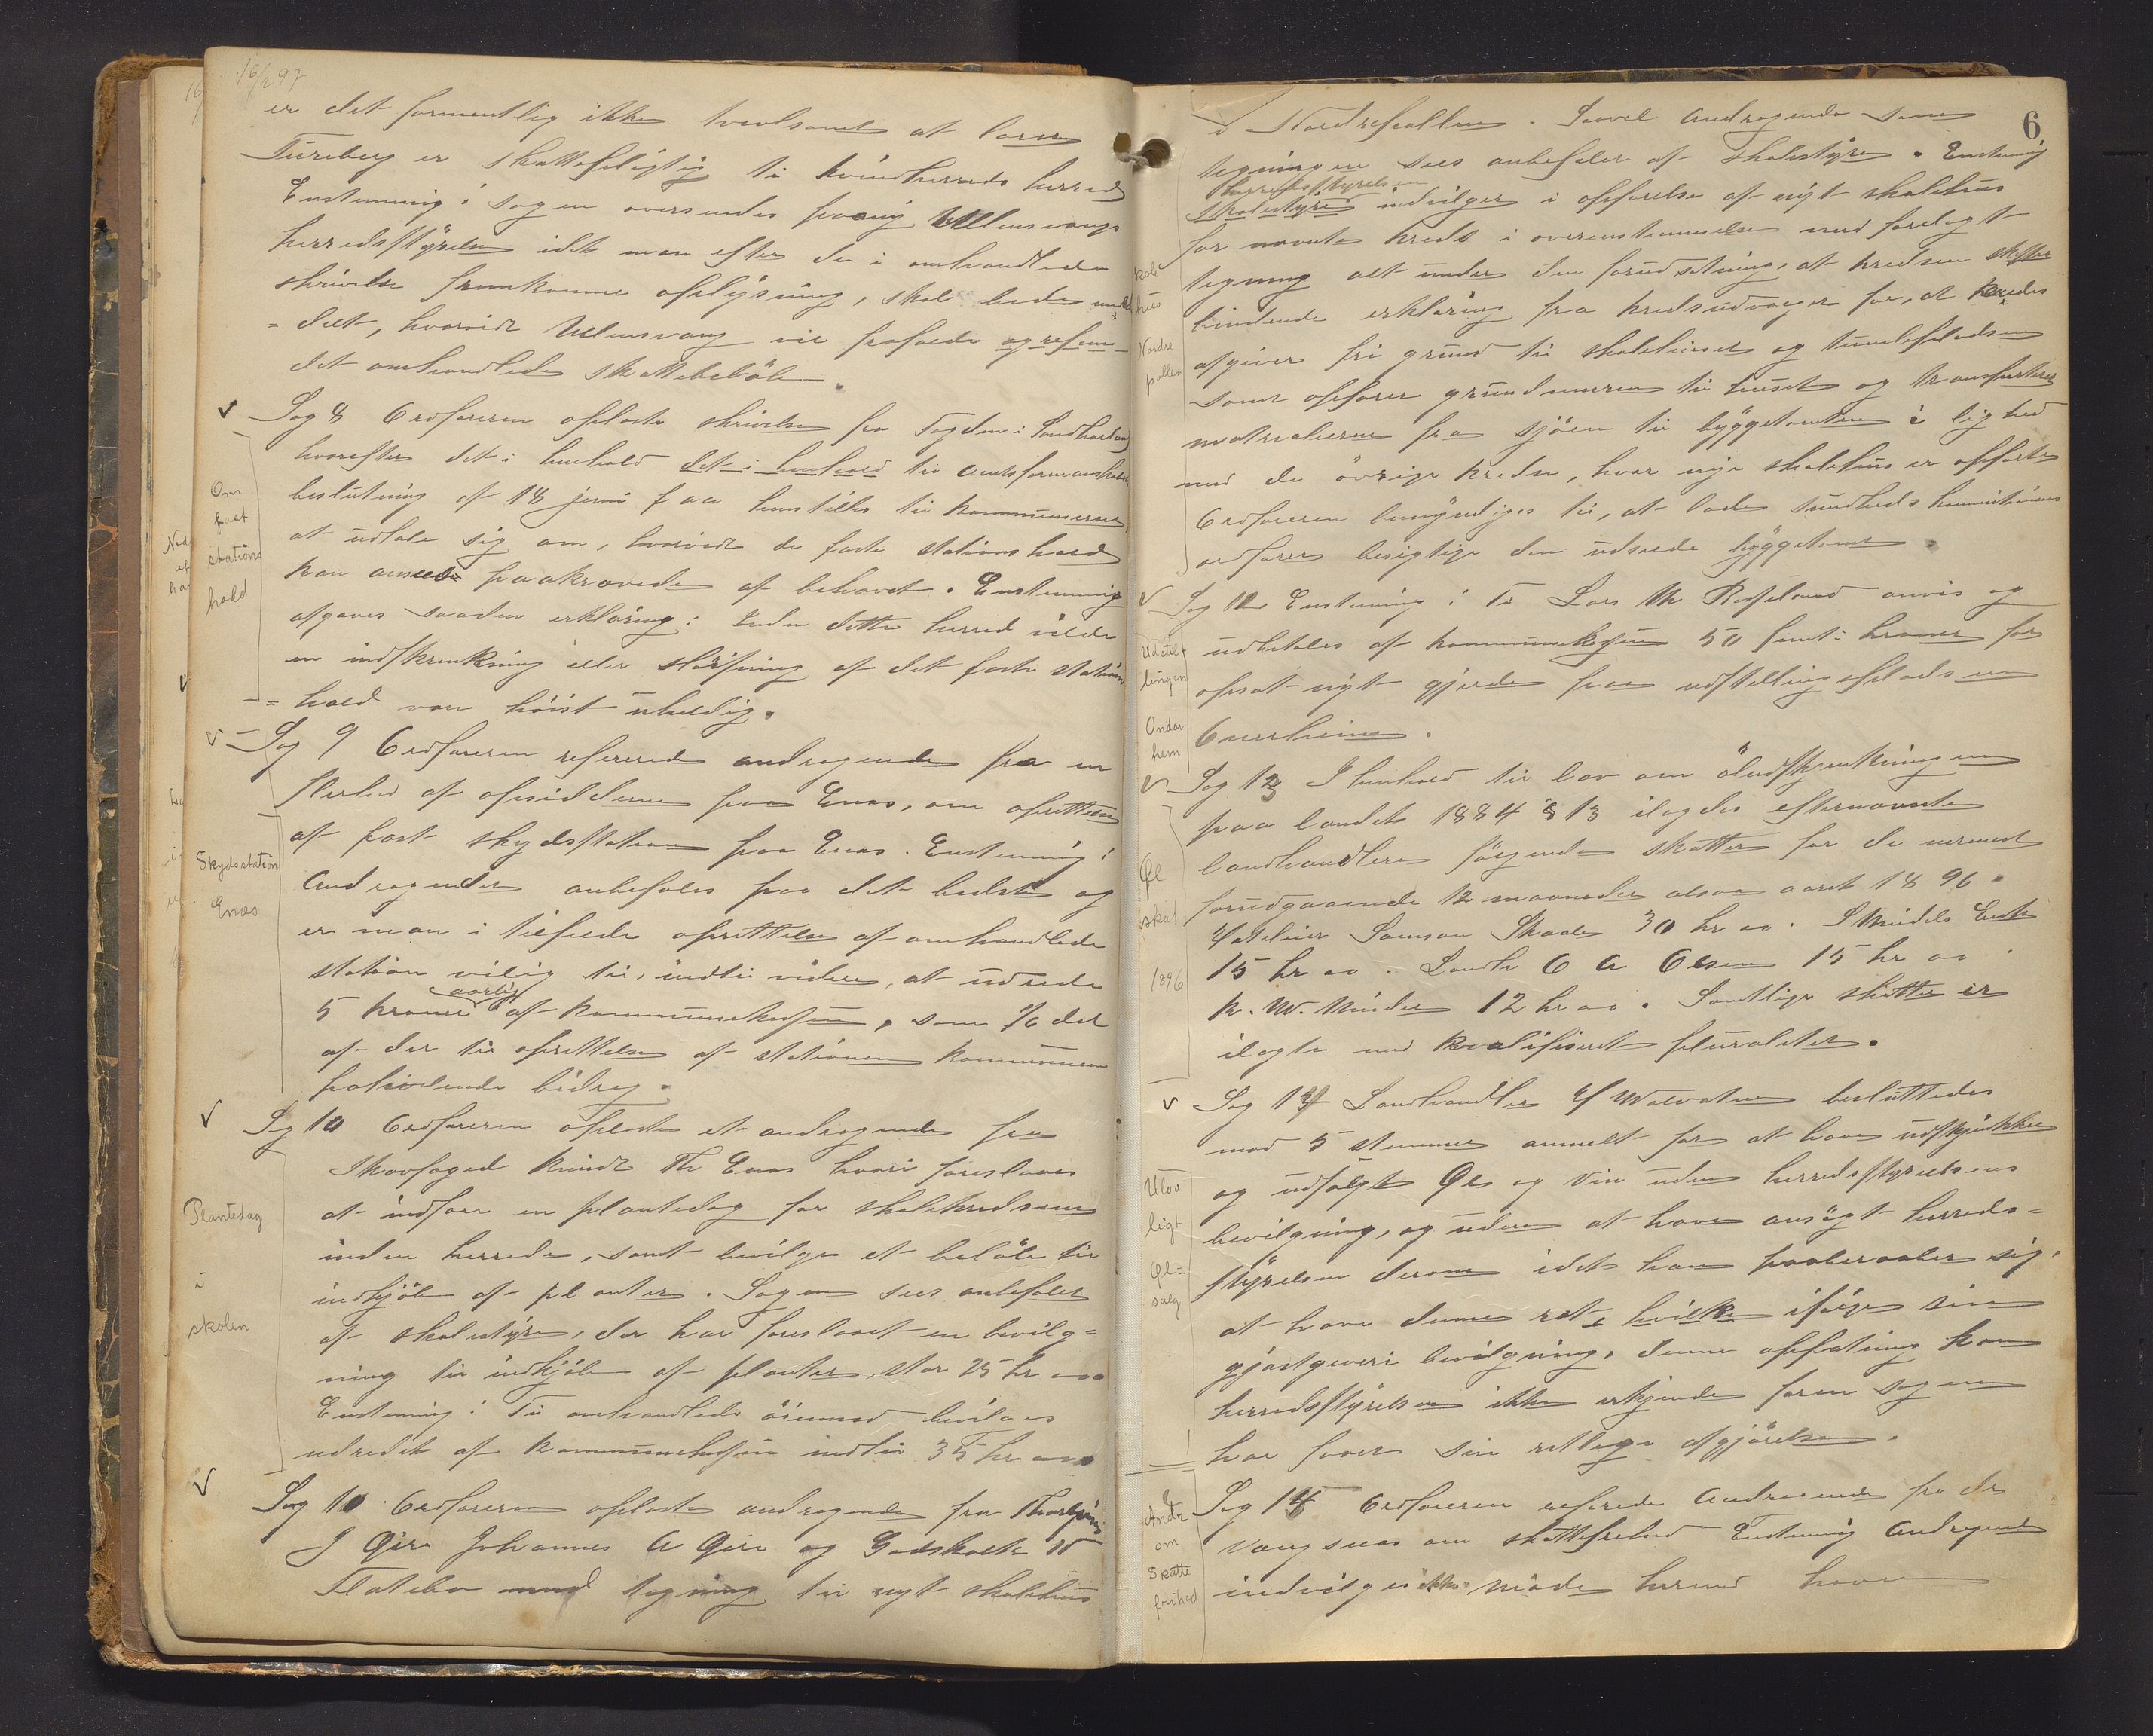 16/2 97
er det formentlig ikke tvivlsomt at Lars
Tureberg er skattepligtig til Kvindherreds herred
Enstemmig: Sagen oversendes paany Ullensvangs
herredsstyrelse idet man efter de i omhandlede
skrivelse fremkomne oplysning, skal bede med-
=delt, hvorvidt Ullensvang vil frafalde og refun-
det omhandlede skattebeløb.
Sag 8 Ordføreren oplæste skrivelse fra Fogden i Søndhordland
hvorefter det i henhold det i henhold til amtsformandskabets
beslutning af 18 juni f aa henstilles til kommunerne
at udtale sig om, hvorvidt de faste stationshold
kan ansees paakrævede af behovet. Enstemmig
afgaves saadan erklæring: Inden dette herred vilde
en indskrenkning eller sløifning af det faste stations
=hold være høist uheldig.
Om
fast
stations
hold
Sag 9 Ordføreren refererede andragende fra en
flerhed af opsidderne paa Enæs, om oprettelse
af fast skydsstation paa Enæs. Enstemmig:
Andragendet anbefales paa det bedste og
er man i tilfælde oprettelse af omhandlede
station villig til, indtil videre, at udrede
5 kroner aarlig af kommunekassen, som 1/6 del
af der til oprettelse af stationen kommunen
paahvilende bidrag.
Skydsstation
Enæs
Sag 10 Ordføreren oplæste et andragende fra
Skovfoged Knud Th Enæs hvori foreslaaes
at indføre en plantedag for skolekredsene
inden herredet, samt bevilge et beløb til
indkjøb af planter. Sagen sees anbefalet
af skolestyre, der har foreslaaet en bevilg=
ning til indkjøb af planter, stor 25 kr
Enstemmig: Til omhandlede øiemed bevilges
udredet af kommunekassen indtil 35 kr
Plantedag
i
skolen
Sag 10 Ordføreren oplæste andragende fra
J Øire Johannes A Øire og Godskalk
Flatebø med tegning til nyt skolehus
6
i Nordrepollen. Saavel andragende som
tegningen sees anbefalet af Skolestyre. Enstemmig
herredsstyrelsen
Skolestyre indvilger i opførelse af nyt skolehus
for nævnte kreds i overensstemmelse med forelagt
tegning alt under den forudsetning, at kredsen skaffer
bindende erklæring fra kredsudvalget for, at kredsen
afgiver fri grund til skolehuset og tumleplads
samt opfører grundmuren til huset og transporterer
materialierne fra sjøen til byggetomten i lighed
med de øvrige kredse, hvor nye skolehus er opført
Ordføreren bemyndiges til, at lade sundhedskommissionens
ordfører besigtige den udseede byggetomt.
skole
hus
Nordre
pollen
Sag 12 Enstemmig: Til Lars M Røseland anvises og
udbetales af kommunekassen 50 femti kroner for
opsat nyt gjerde paa udstillingspladsen
Onarheim.
Udstil-
lingen
Ondar
hem
Sag 13 I henhold til lov om øludskjenkningen
paa landet 1884 § 13 ilagdes efternævnte
landhandlere følgende skatter for de nærmest
forudgaaende 12 maaneder altsaa aaret 1896.
Hotelleier Samson Skaale 30 kr oo. Enke
15 kr oo. Landh O A Olsen 15 kr oo
K. W. Minder 12 kr oo. Samtlige skatter er
ilagte med kvalifiseret pluralitet.
Øl
skat
1896
Sag 14 Landhandler beslutedes
mod 5 stemmer anmelt for at have udskjænket
og udsolgt Øl og Vin uden herredsstyrelsens
bevilgning, og uden at have ansøgt herreds=
styrelsen derom idet han paaberaaber sig
at have denne ret, hvilke ifølge sin
gjæstgiveri bevilgning, denne opfatning kan
herredsstyrelsen ikke erkjende før en sagen
har faaet sin retlige afgjørelse.
Ulov
ligt
Øl=
salg
Sag 15 Ordføreren refererede Andragende fra dr
Vangsnæs om skattefrihed Enstemmig Andragendet
indvilges ikke. Møde hermed hævet
Andr
om
Skatte
frihed